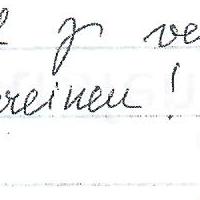 z ve
reinen !